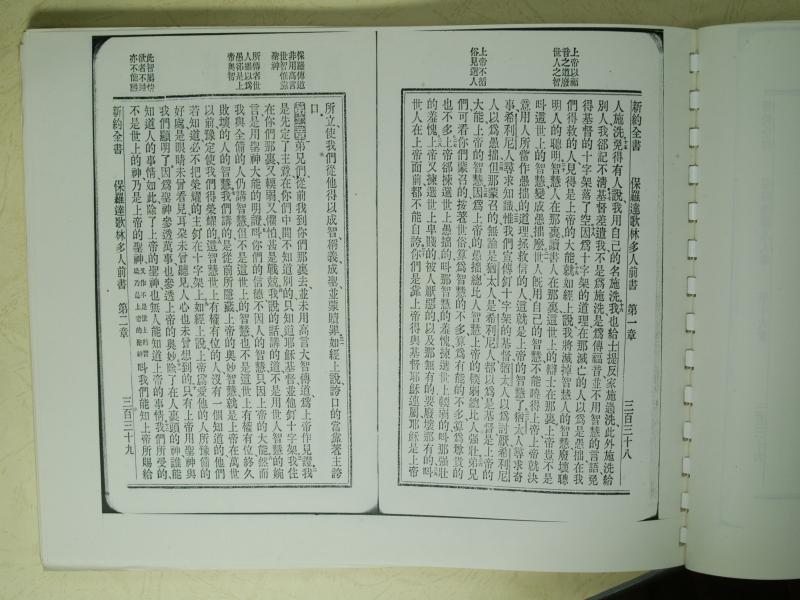 新約全書 保羅達歌林多人前書 第一章 三百三十八
上帝以福
音之道廢
世人之智
上帝不循
俗見選人
人施洗免得有人說我用自己的名施洗我也給士提反家施過洗此外施洗給
別人我卻記不清基督差遣我不是為施洗是為傳福音並不用智慧的言語免
得基督的十字架落了空因為十字架的道理在那滅亡的人以為是愚拙在我
們得救的人見得是上帝的大能就如經上說我將滅掉智慧人的智慧廢壞聰
明人的聰明智慧人在那裏讀書人在那裏這世上的辯士在那裏上帝豈不是
叫這世上的智慧變成愚拙麽世人旣用自己的智慧不能曉得上帝上帝就決
意用人所當作愚拙的道理拯救信的人這就是上帝的智慧了猶太人尋求奇
事希利尼人尋求知識惟我們宣傳釘十字架的基督猶太人以為討厭希利尼
人以為愚拙但那蒙召的無論是猶太人是希利尼人都以為是基督是上帝的
大能上帝的智慧因為上帝的愚拙總比人智慧上帝的輭弱總比人強壯弟兄
們可看你們蒙召的按著世俗算為智慧的不多算為有能的不多算為尊貴的
也不多上帝卻揀選世上愚拙的叫那智慧的羞愧揀選世上輭弱的叫那強壯
的羞愧上帝又揀選世上卑賤的被人厭惡的以及那無有的要廢壞那有的叫
世人在上帝面前都不能自誇你們是靠上帝得與基督耶穌連屬耶穌是上帝
保羅傳道
非用高言
世智惟靠
聖神
所傳者世
人雖以為
愚卻是上
帝奧智
此智屬世
亦不能
所立使我們從他得以成智稱義成聖並蒙贖罪如經上說誇口的當靠著主誇
口
第二章弟兄們從前我到你們那裏去並未用高言大智傳道為上帝作見證我
是先定了主意在你們中間不知道別的只知道耶穌基督並他釘十字架我住
在你們那裏又輭弱又懼怕甚是戰兢我說的話講的道不是用世人智慧的婉
言是用聖神大能的明證叫你們的信德不因人的智慧只因上帝的大能然而
我與全備的人仍講智慧但不是這世上的智慧也不是這世上有權有位終久
敗壞的人的智慧我們講的是從前所隱藏上帝的奧妙智慧就是上帝在萬世
以前豫定使我們得榮耀的這智慧世上有權有位的人沒有一個知道的他們
若知道必不把榮耀的主釘在十字架上如經上說上帝為愛他的人所豫備的
好處是眼睛未曾看見耳朵未曾聽見人心也未曾想到的只有上帝用聖神與
我們顯明了因為聖神參透萬事也參透上帝的奧妙除了在人裏頭的神誰能
知道人的事情如此除了上帝的聖神也無人能知道上帝的事情我們所受的
不是世上的神乃是上帝的聖神叫我們能知上帝所賜給
新約全書 保羅達歌林多人前書 第二章 三百三十九